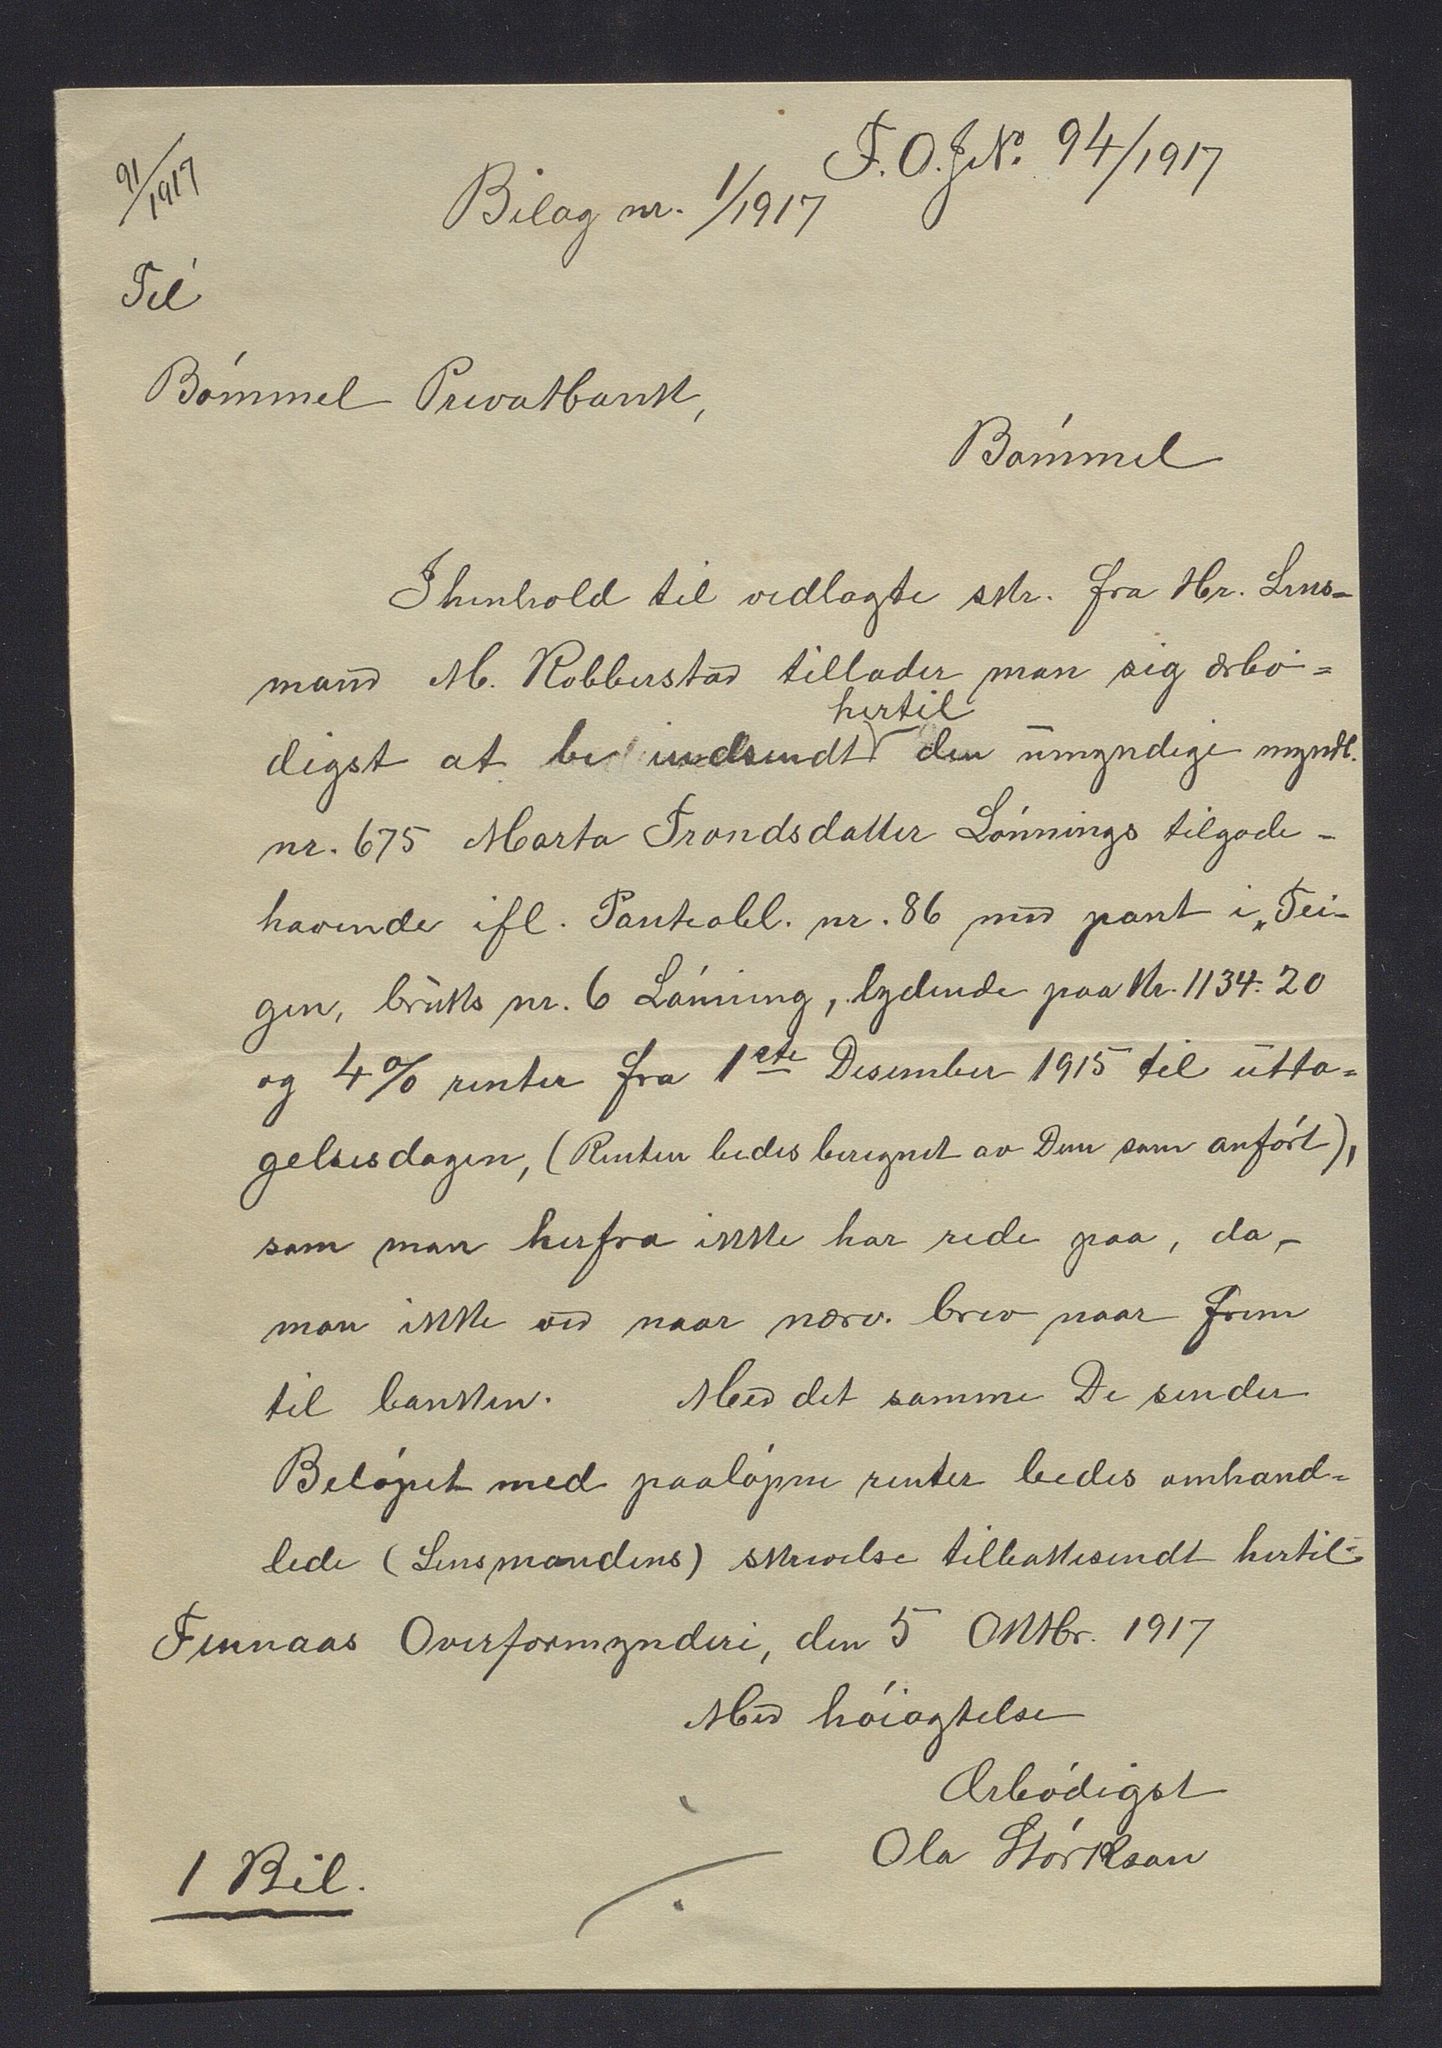 91/1917
F. O. J.No. 94/1917
Bilag nr. 1/1917
Til
Bómmel Privatbank,
Bómmel
I henhold til vedlagte skr. fra Hr. Lens-
mand M. Robberstad tillader man sig ærbó-
digst at be indsendt hertil den umyndige myndl.
nr. 675 Marta Trondsdatter Lónnings tilgode-
havende ifl. Panteobl. nr. 86 med pant i „Tei-
gen, bruks nr. 6 Lónning, lydende paa Kr. 1134.20
og 4% renter fra 1ste Desember 1915 til utta-
gelsesdagen, (Renten bedes beregnet av Dem som anfórt),
som man herfra ikke har rede paa, da
man ikke ved naar nærv. brev naar frem
til banken. Med det samme De sender
Belópet med paalópne renter bedes omhand-
lede (Lensmandens) skrivelse tilbakesendt hertil.
Finnaas Overformynderi, den 5 Oktbr. 1917
Med hóiagtelse
Ærbódigst
Ola Stórkson
1 Bil.